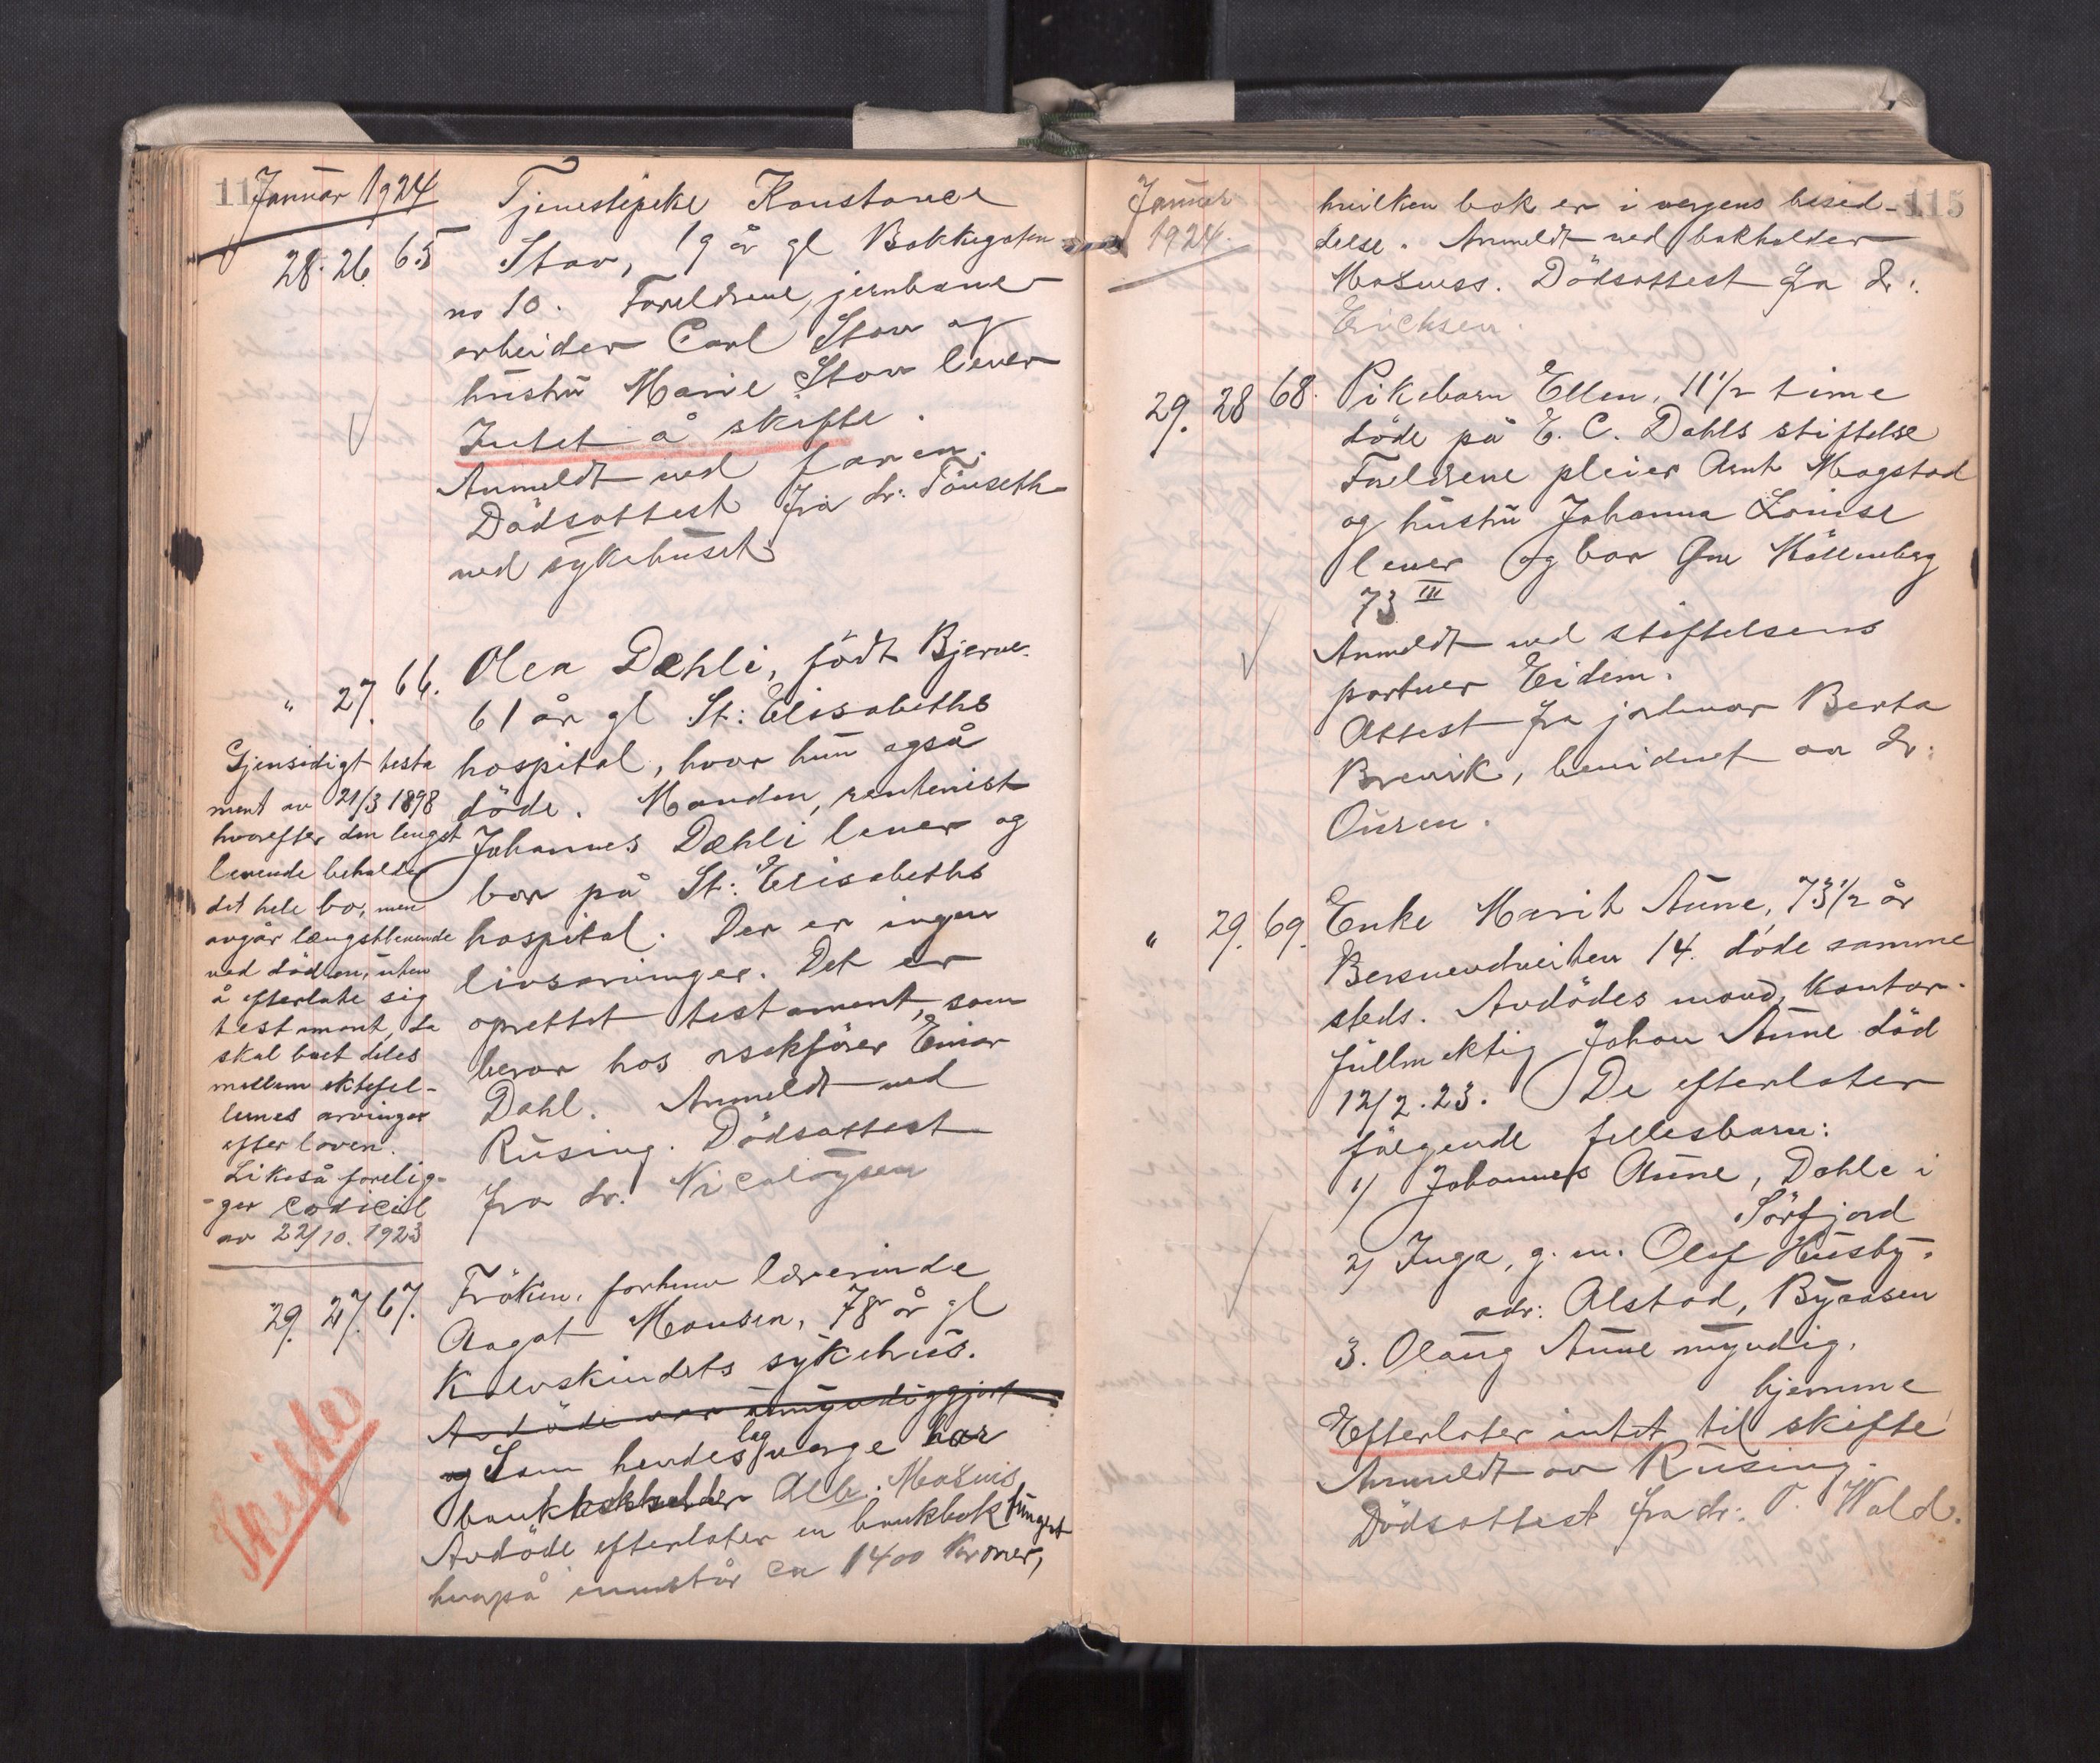 Januar 1924
28. 26. 65
Tjenestepike Konstance
Stav, 19 år gl Bakkegaten
no 10. Foreldrene, jernbane-
arbeider Carl Stav og
hustru Marie Stav lever
Intet å skifte.
Anmeldt ved faren.
Dödsattest fra dr: Tönseth
ved sykehuset
" 27. 66.
Olea Dæhli, födt Bjerve.
61 år gl St: Elisabeths
hospital, hvor hun også
döde. Manden, rentenist
Johannes Dæhli lever og
bor på St: Elisabeths
hospital. Der er ingen
livsarvinger. Det er
oprettet testament, som
beror hos o.r.sakförer Einar
Dahl. Anmeldt ved
Rusing. Dödsattest
fra dr. Nicolaysen
Gjensidigt testa
ment av 21/3 1898
hvorefter den lengst
levende beholder
det hele bo, men
avgår længstlevende
ved döden, uten
å efterlate sig
testament, da
skal boet deles
mellem ektefel-
lenes arvinger
efter loven.
Likeså forelig-
ger codicil
av 22/10. 1923
29. 27. 67.
Fröken, forhenv lærerinde
Aagot Monsen, 78 år gl
Kalvskindets sykehus.
Avdöde var umyndiggjort
og Som hendes lagverge har
bankbokholder Alb. Mosnes fungert
Avdöde efterlater en bankbok
hvorpå innestår ca 1400 Kroner,
Skifte
Januar
1924.
115
hvilken bok er i vergens besid-
delse. Anmeldt ved bokholder
Mosness. Dödsattest fra dr:
Erichsen.
29. 28 68.
Pikebarn Ellen, 11 1/2 time
döde på E. C. Dahls stiftelse
Foreldrene pleier Arnt Magstad
og hustru Johanna Louise
lever og bor Övre Möllenberg
73 III
Anmeldt ved stiftelsens
portner Eidem.
Attest fra jordmor Berta
Brevik, bevidnet av dr:
Ouren.
" 29. 69.
Enke Marit Aune, 73 1/2 år
Bersvendveiten 14. döde samme
steds. Avdödes mand, kontor-
fullmektig Johan Aune död
12/2.23. De efterlater
fölgende fellesbarn:
1) Johannes Aune, Dahle i
Sörfjord
2) Inga, g. m. Olaf Husby.
adr: Alstad, Byaasen
3. Olaug Aune myndig.
hjemme
Efterlater intet til skifte
Anmeldt av Rusing.
Dödsattest fra dr: P. Wold.